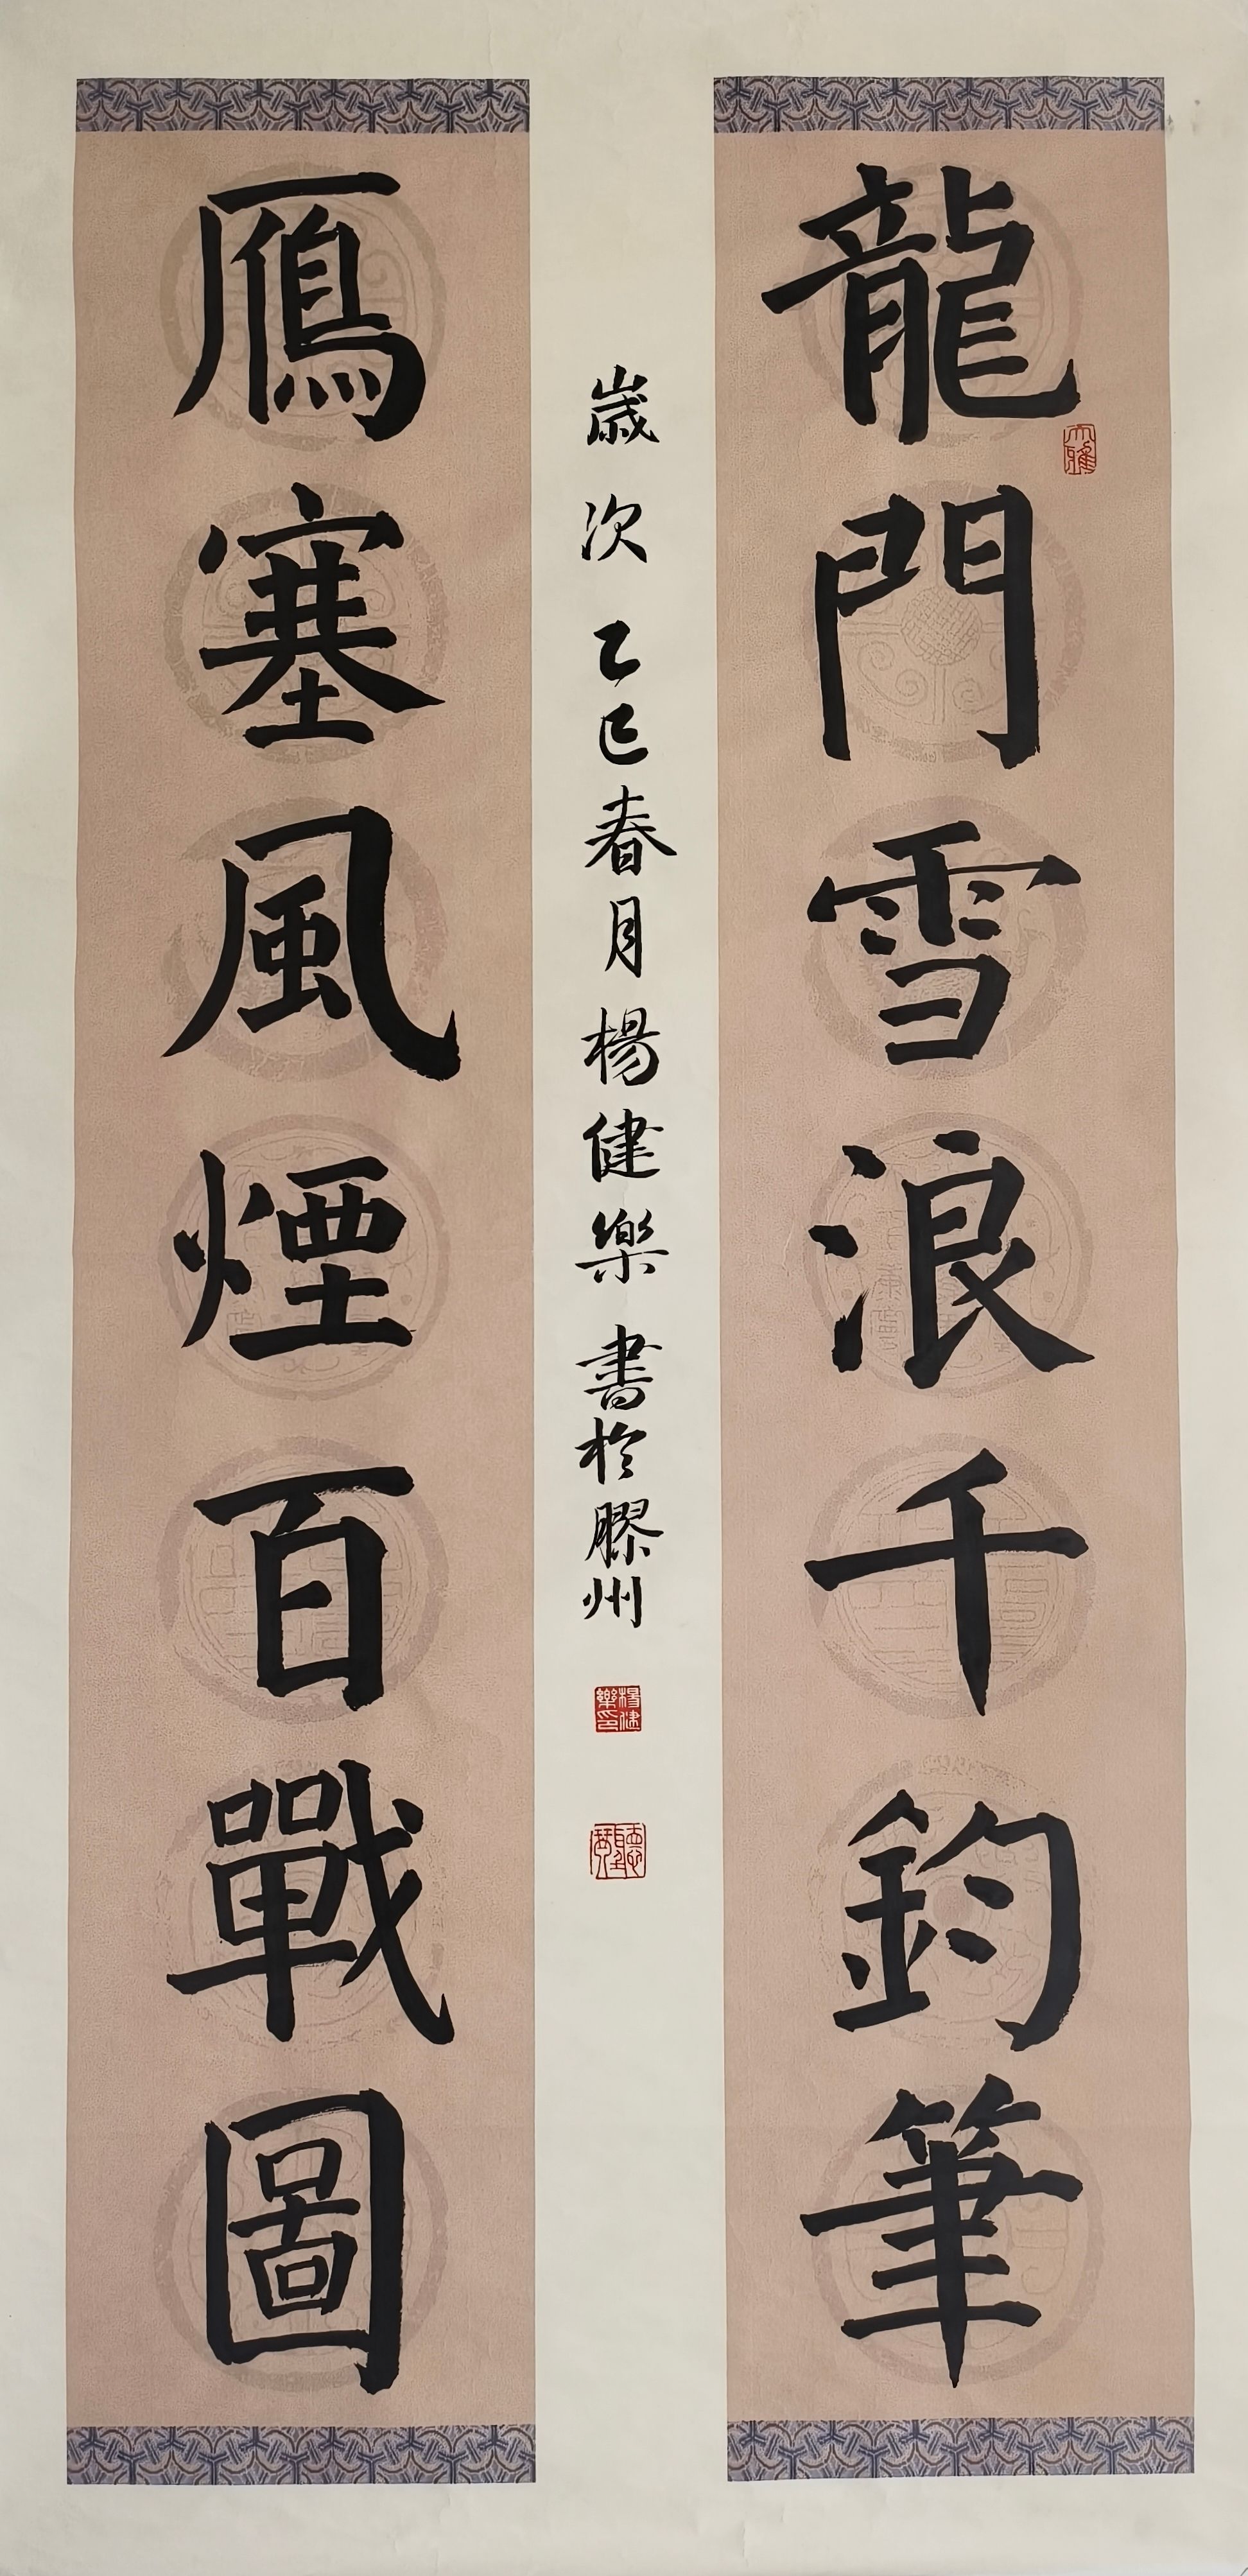 龍門雪浪千鈞筆
大雅
鴈塞風煙百戰圖
歲次乙巳春月楊健樂書於膠州
楊健樂印